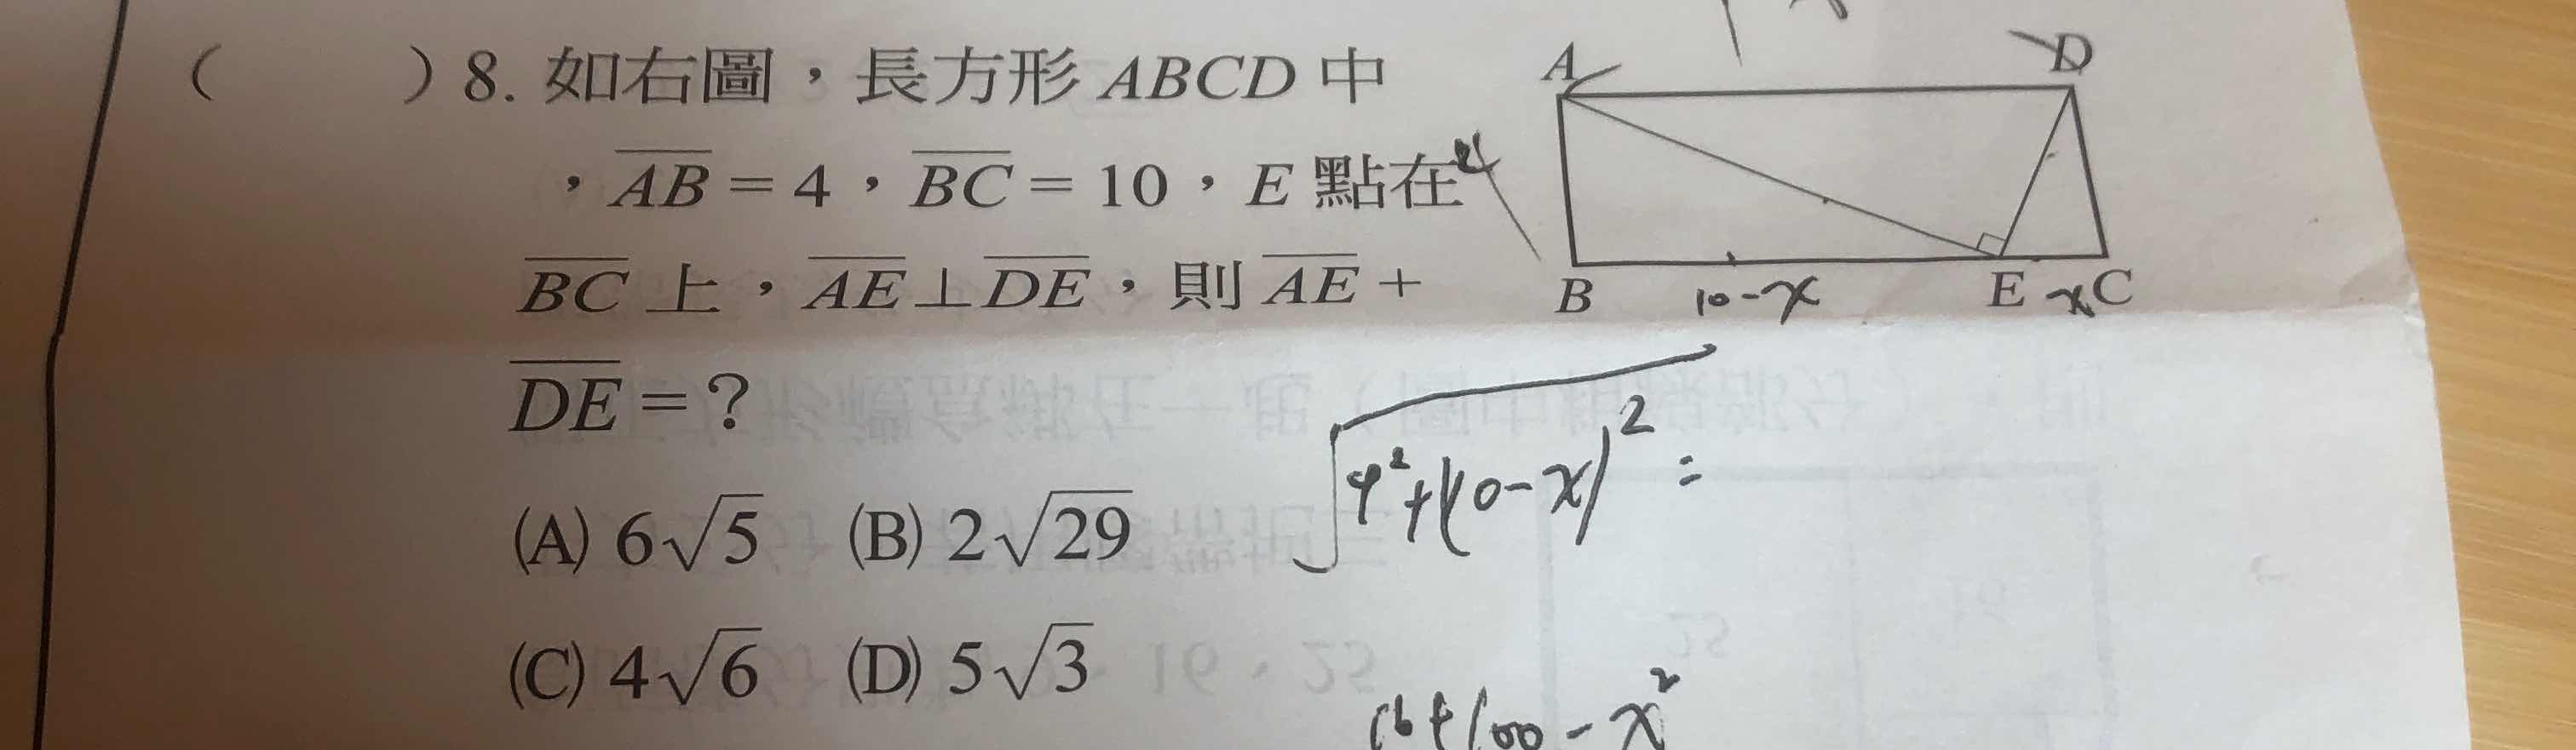 ( )8. 如右圖，長方形 ABCD 中
，AB = 4，BC = 10，E 點在
BC 上，AE⊥DE，則 AE +
DE = ?
(A) 6√5 (B) 2√29
(C) 4√6 (D) 5√3
A D
4
B 10-x E x C
√4²+(10-x)² =
16+100-x²